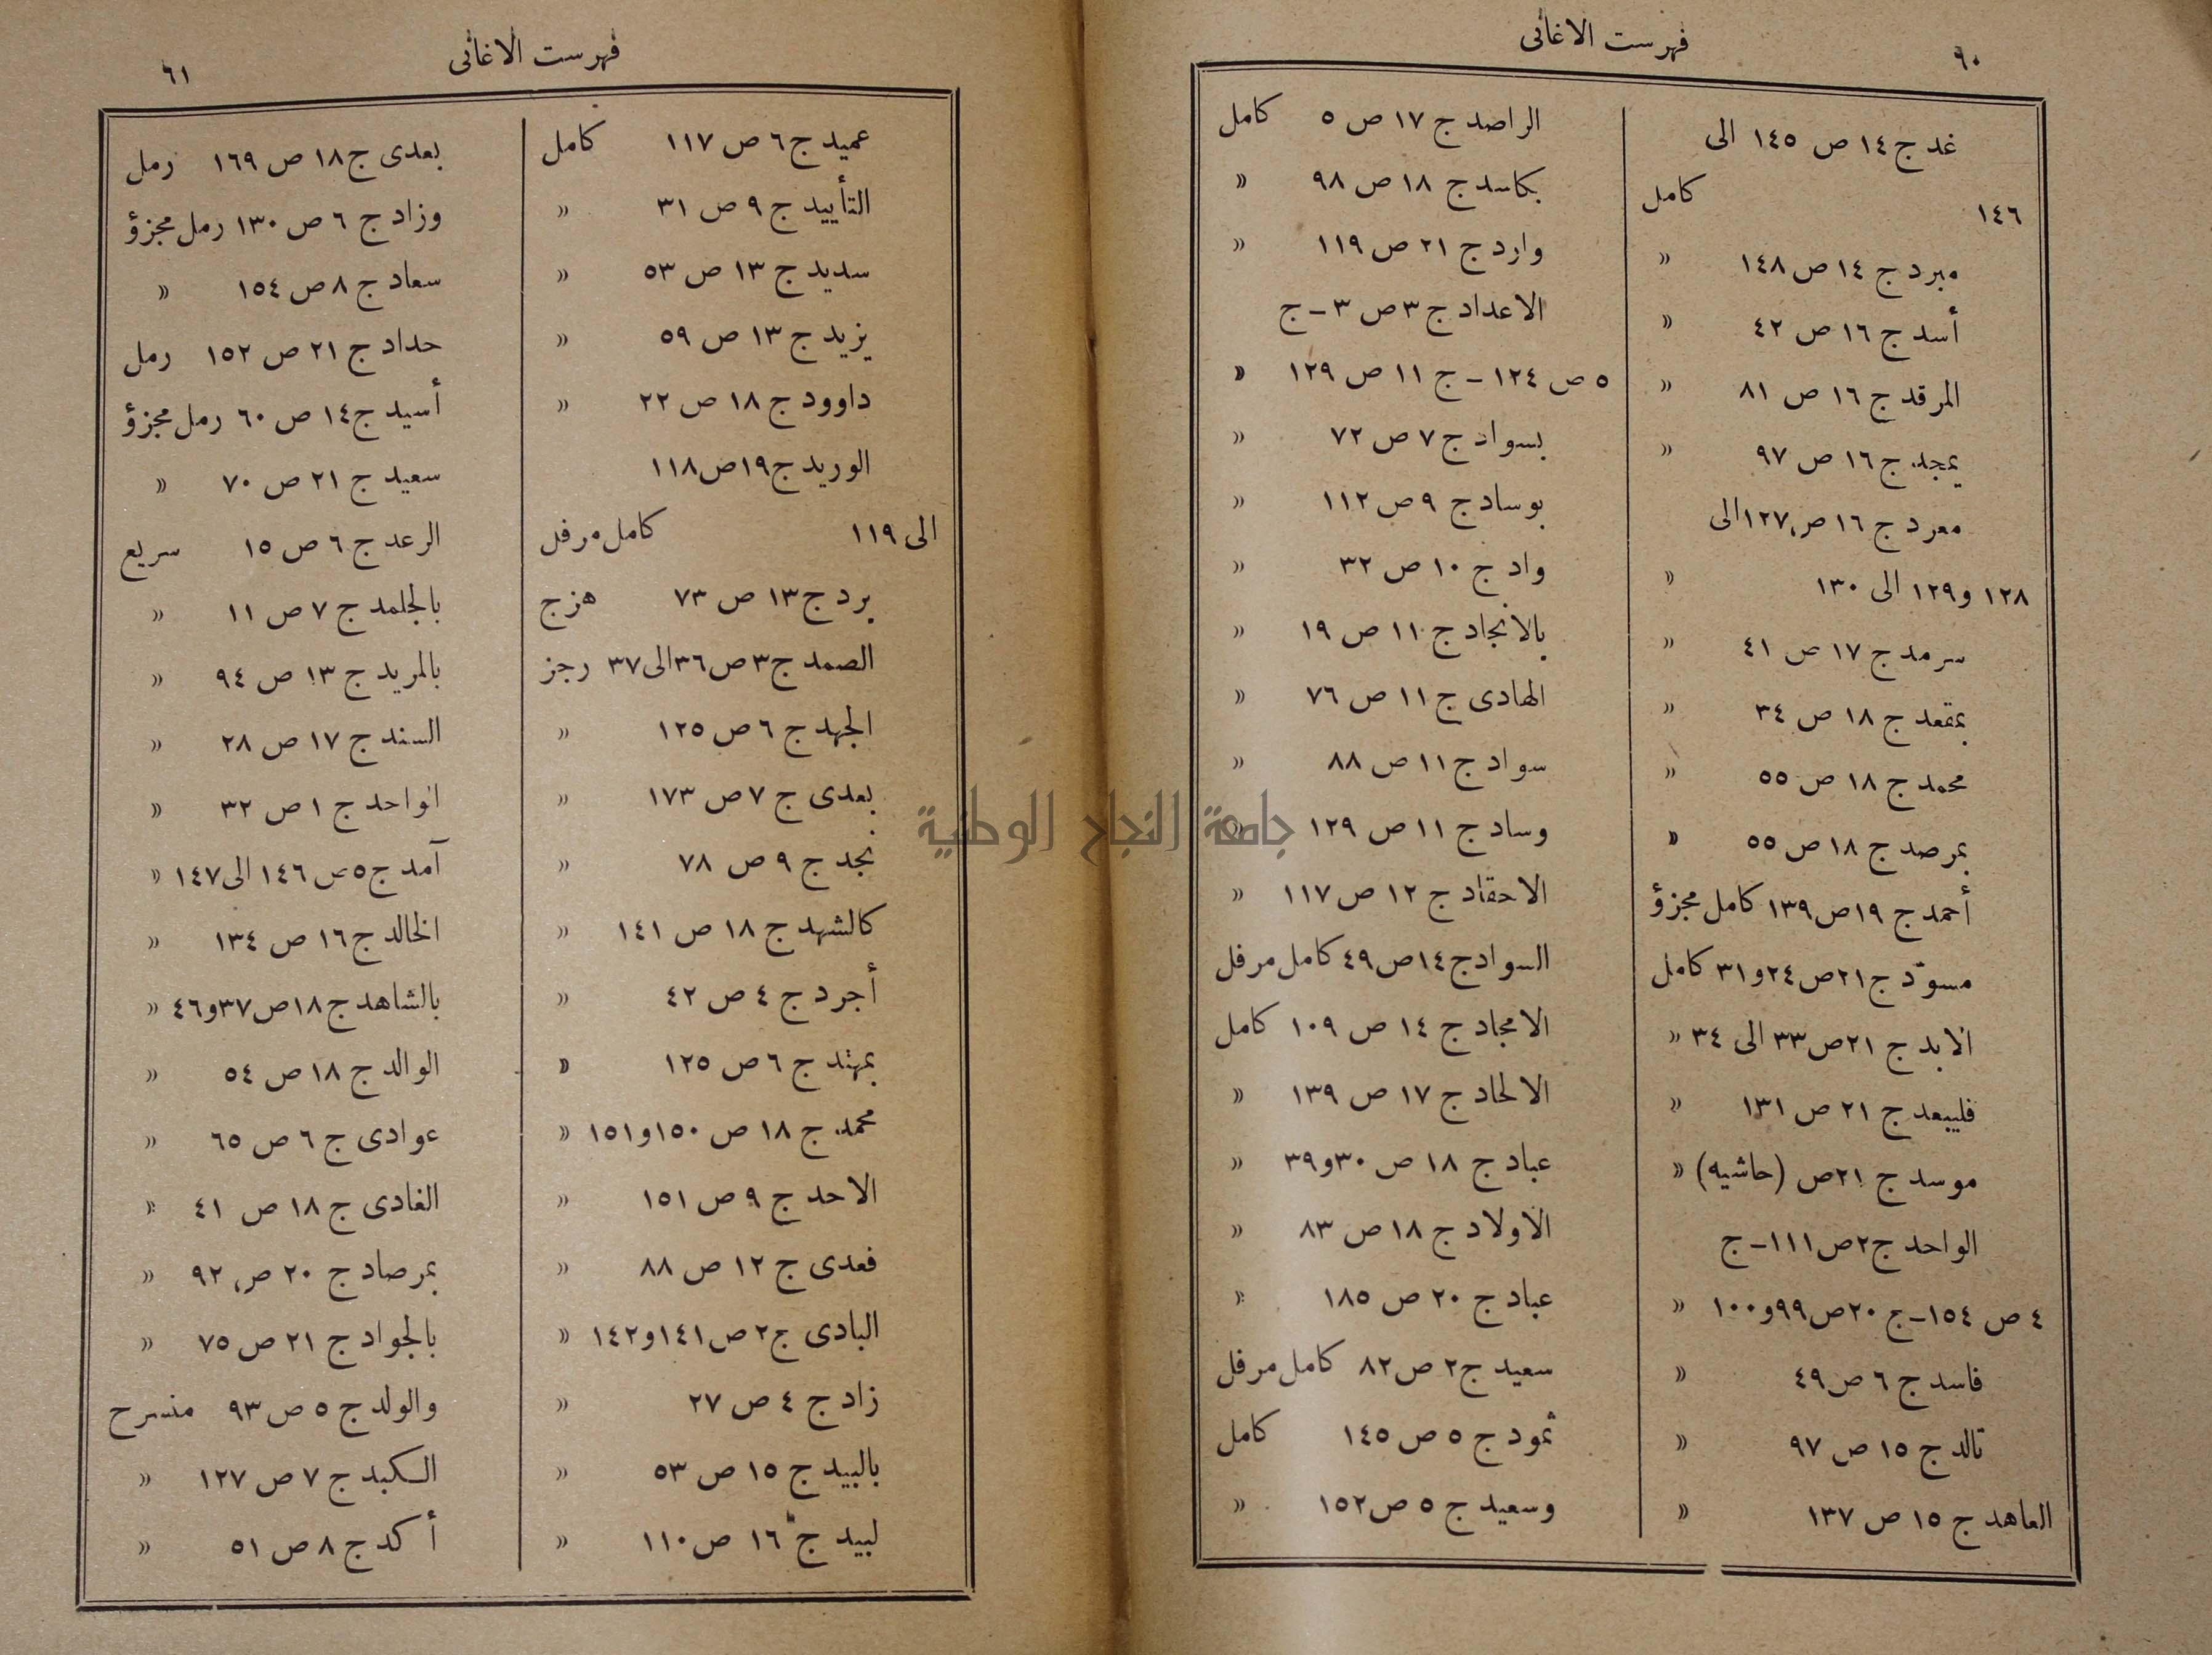 ٦٠
فهرست الاغانى
غد ج ١٤ ص ١٤٥ الى
١٤٦ كامل
مبرد ج ١٤ ص ١٤٨ «
أسد ج ١٦ ص ٤٢ «
المرقد ج ١٦ ص ٨١ «
يمجد ج ١٦ ص ٩٧ «
معرد ج ١٦ ص ١٢٧ الى
١٢٨ و ١٢٩ الى ١٣٠ «
سرمد ج ١٧ ص ٤١ «
بمقعد ج ١٨ ص ٣٤ «
محمد ج ١٨ ص ٥٥ «
بمرصد ج ١٨ ص ٥٥ «
أحمد ج ١٩ ص ١٣٩ كامل مجزؤ
مسوّد ج ٢١ ص ٢٤ و ٣١ كامل
الابد ج ٢١ ص ٣٣ الى ٣٤ «
فليبعد ج ٢١ ص ١٣١ «
موسد ج ٢١ ص (حاشيه) «
الواحد ج ٢ ص ١١١ – ج
٤ ص ١٥٤ – ج ٢٠ ص ٩٩ و ١٠٠ «
فاسد ج ٦ ص ٤٩ «
تالد ج ١٥ ص ٩٧ «
العاهد ج ١٥ ص ١٣٧ «
الراصد ج ١٧ ص ٥ كامل
بكاسد ج ١٨ ص ٩٨ «
وارد ج ٢١ ص ١١٩ «
الاعداد ج ٣ ص ٣ – ج
٥ ص ١٢٤ – ج ١١ ص ١٢٩ «
بسواد ج ٧ ص ٧٢ «
بوساد ج ٩ ص ١١٢ «
واد ج ١٠ ص ٣٢ «
بالانجاد ج ١١ ص ١٩ «
الهادى ج ١١ ص ٧٦ «
سواد ج ١١ ص ٨٨ «
وساد ج ١١ ص ١٢٩ «
الاحقاد ج ١٢ ص ١١٧ «
السواد ج ١٤ ص ٤٩ كامل مرفل
الامجاد ج ١٤ ص ١٠٩ كامل
الالحاد ج ١٧ ص ١٣٩ «
عباد ج ١٨ ص ٣٠ و ٣٩ «
الاولاد ج ١٨ ص ٨٣ «
عباد ج ٢٠ ص ١٨٥ «
سعيد ج ٢ ص ٨٢ كامل مرفل
ثمود ج ٥ ص ١٤٥ كامل
وسعيد ج ٥ ص ١٥٢ «
فهرست الاغانى
٦١
عميد ج ٦ ص ١١٧ كامل
التأييد ج ٩ ص ٣١ «
سديد ج ١٣ ص ٥٣ «
يزيد ج ١٣ ص ٥٩ «
داوود ج ١٨ ص ٢٢ «
الوريد ج ١٩ ص ١١٨
الى ١١٩ كامل مرفل
برد ج ١٣ ص ٧٣ هزج
الصمد ج ٣ ص ٣٦ الى ٣٧ رجز
الجهد ج ٦ ص ١٢٥ «
بعدى ج ٧ ص ١٧٣ «
نجد ج ٩ ص ٧٨ «
كالشهد ج ١٨ ص ١٤١ «
أجرد ج ٤ ص ٤٢ «
بمهتد ج ٦ ص ١٢٥ «
محمد ج ١٨ ص ١٥٠ و ١٥١ «
الاحد ج ٩ ص ١٥١ «
فعدى ج ١٢ ص ٨٨ «
البادى ج ٢ ص ١٤١ و ١٤٢ «
زاد ج ٤ ص ٢٧ «
بالبيد ج ١٥ ص ٥٣ «
لبيد ج ١٦ ص ١١٠ «
بعدى ج ١٨ ص ١٦٩ رمل
وزاد ج ٦ ص ١٣٠ رمل مجزؤ
سعاد ج ٨ ص ١٥٤ «
حداد ج ٢١ ص ١٥٢ رمل
أسيد ج ١٤ ص ٦٠ رمل مجزؤ
سعيد ج ٢١ ص ٧٠ «
الرعد ج ٦ ص ١٥ سريع
بالجلمد ج ٧ ص ١١ «
بالمربد ج ١٣ ص ٩٤ «
السند ج ١٧ ص ٢٨ «
الواحد ج ١ ص ٣٢ «
آمد ج ٥ ص ١٤٦ الى ١٤٧ «
الخالد ج ١٦ ص ١٣٤ «
بالشاهد ج ١٨ ص ٣٧ و ٤٦ «
الوالد ج ١٨ ص ٥٤ «
عوادى ج ٦ ص ٦٥ «
الغادى ج ١٨ ص ٤١ «
بمرصاد ج ٢٠ ص ٩٢ «
بالجواد ج ٢١ ص ٧٥ «
والولد ج ٥ ص ٩٣ منسرح
الكبد ج ٧ ص ١٢٧ «
أكد ج ٨ ص ٥١ «
جامعة النجاح الوطنية